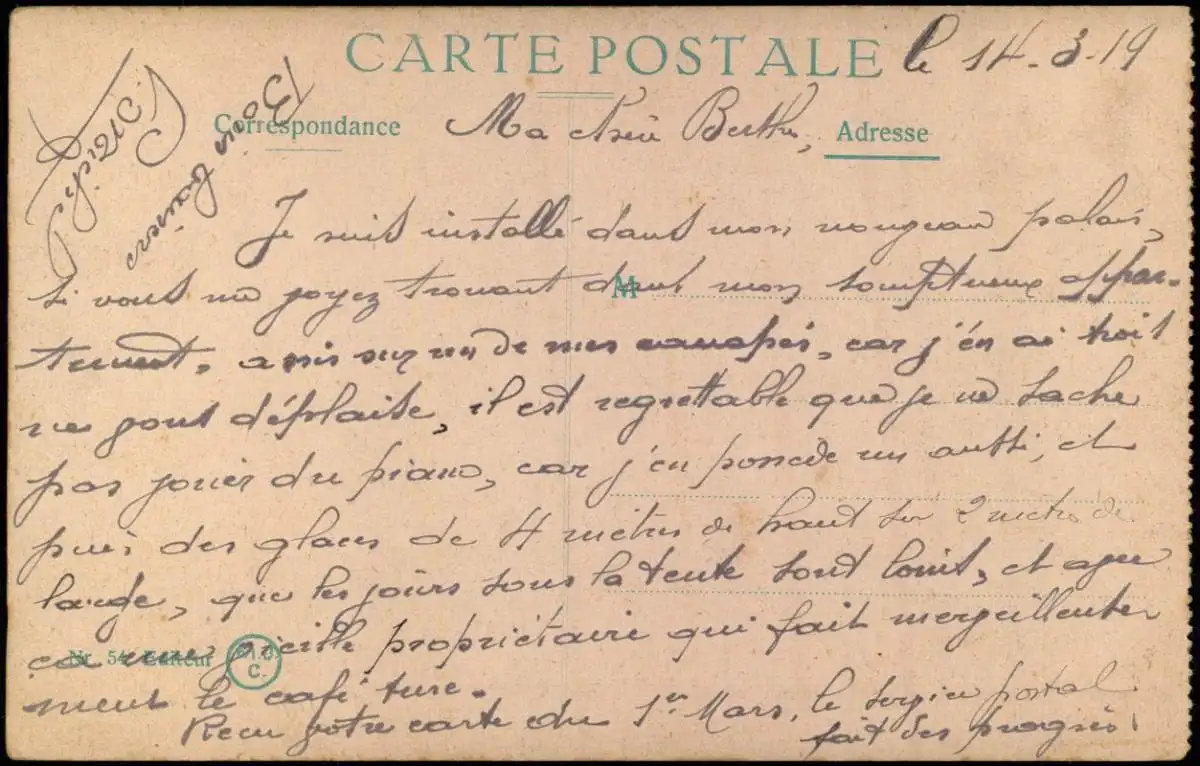 CARTE POSTALE
le 14-3-19
Correspondance
Ma chère Berthe,
Adresse
Je suis installé dans mon nouveau palais,
si vous me voyez trouant dans mon somptueux appar-
tement, assis sur un de mes canapés, car j'en ai trois
ne vous déplaise, il est regrettable que je ne sache
pas jouer du piano, car j'en possède un aussi, et
puis des glaces de 4 mètres de haut sur 2 mètres de
large, que les jours sous la tente sont loins, et avec
ça une vieille propriétaire qui fait merveilleuse
ment le café turc.
Recu votre carte du 1er Mars, le service postal
fait des progrès!
Bons baisers
M
Nr. 54 Editeur
C.